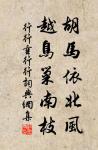 胡馬依北風
越鳥巢南枝
行行重行行詞典網集